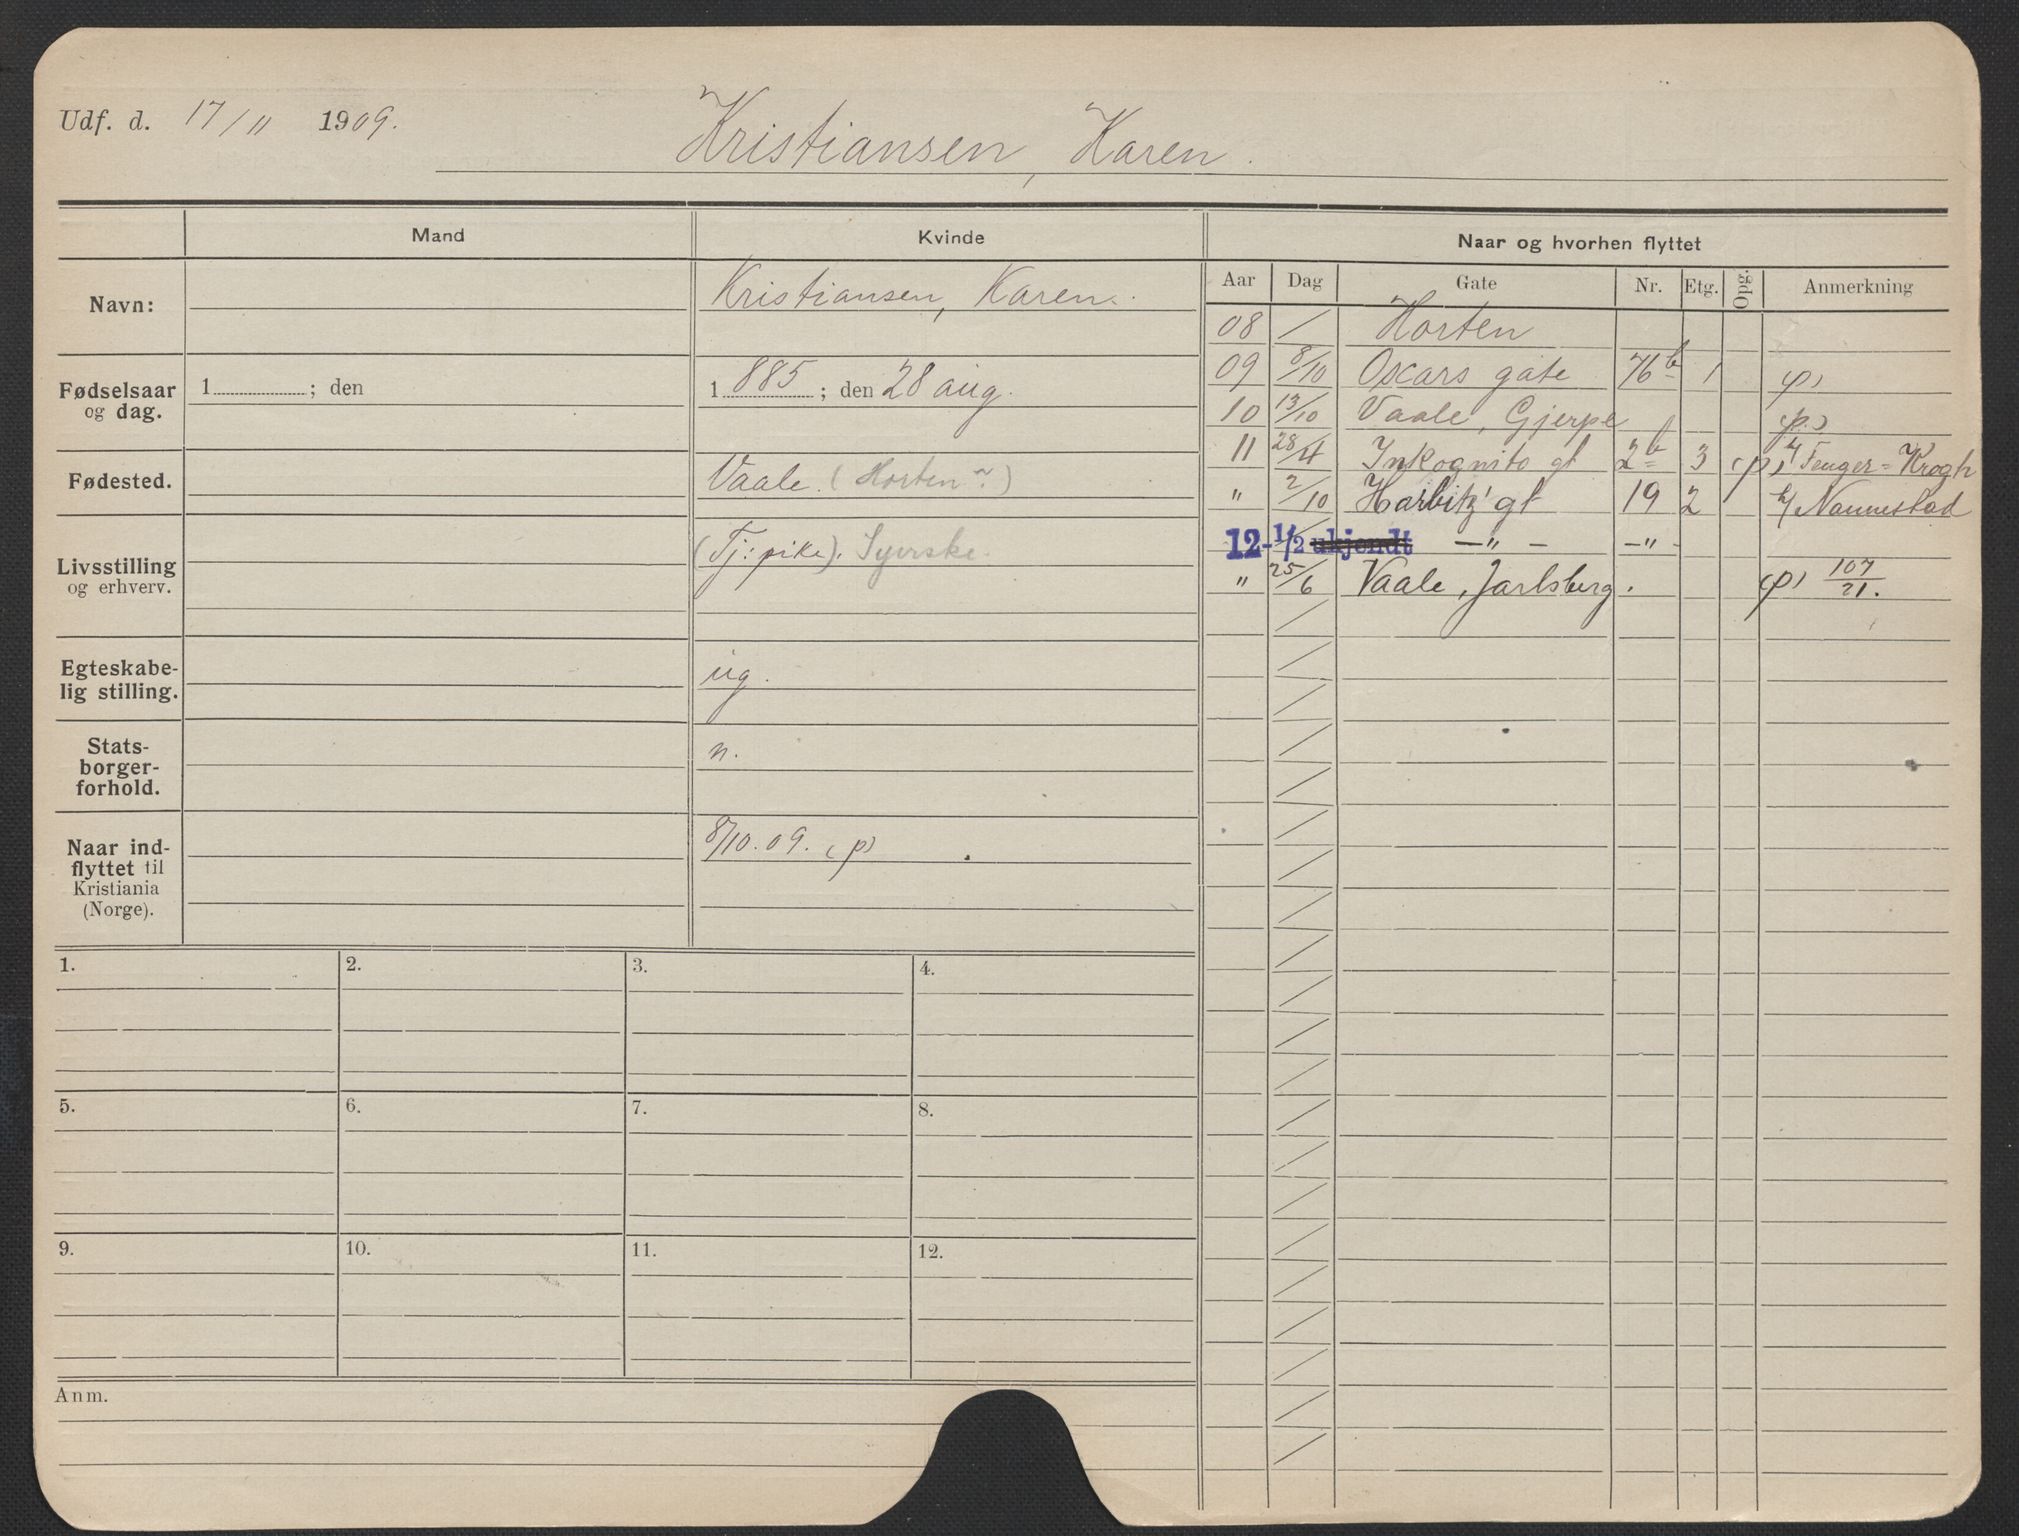 Udf. d. 17/11 1909.
Kristiansen, Karen.
Mand Kvinde Naar og hvorhen flyttet
Aar Dag Gate Nr. Etg. Opg. Anmerkning
Navn: Kristiansen, Karen.
Fødselsaar og dag. 1 ; den 1 885 ; den 28 aug.
Fødested. Vaale (Horten ~)
Livsstilling og erhverv. (Tj: pike). Syerske.
Egteskabe-
lig stilling. ug.
Stats-
borger-
forhold. n.
Naar ind-
flyttet til
Kristiania
(Norge). 8/10.09. (p)
08 / Horten
09 8/10 Oscars gate 76b 1 (p)
10 13/10 Vaale, Gjerpe (p.)
11 28/4 Inkognito gt 2b 3 (p) h/ Fenger=Krogh
" 2/10 Harbitz' gt 19 2 h/ Nannestad
12 - 1/2 ukjendt — " — — " -
" 25/6 Vaale, Jarlsberg. (p) 107/21.
1. 2. 3. 4.
5. 6. 7. 8.
9. 10. 11. 12.
Anm.